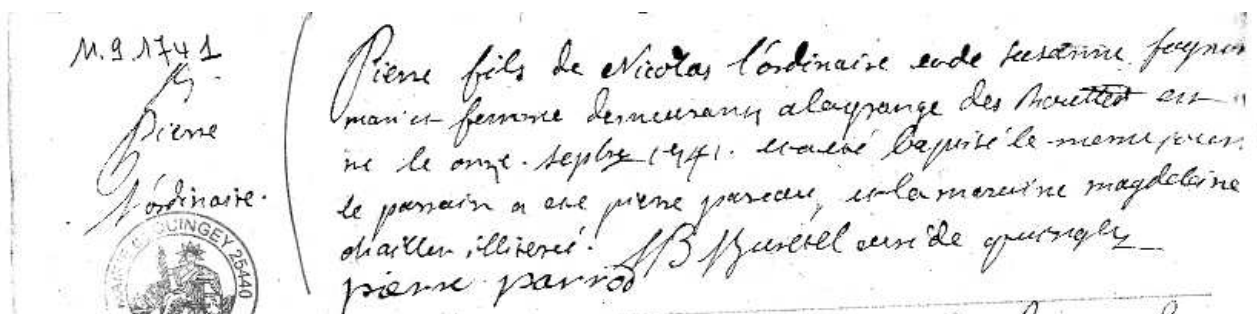 N. 9. 1741
Pierre
L'ordinaire.
MAIRIE QUINGEY 25440
Pierre fils de Nicolas l'ordinaire et de Susanne
mari et femme demeurant a la grange des est
ne le onze septbre 1741. et a été baptisé le meme jour
le parrain a été pierre pareau, et la maraine magdeleine
chaillet illiteré. JB curé de quingey
pierre parrod